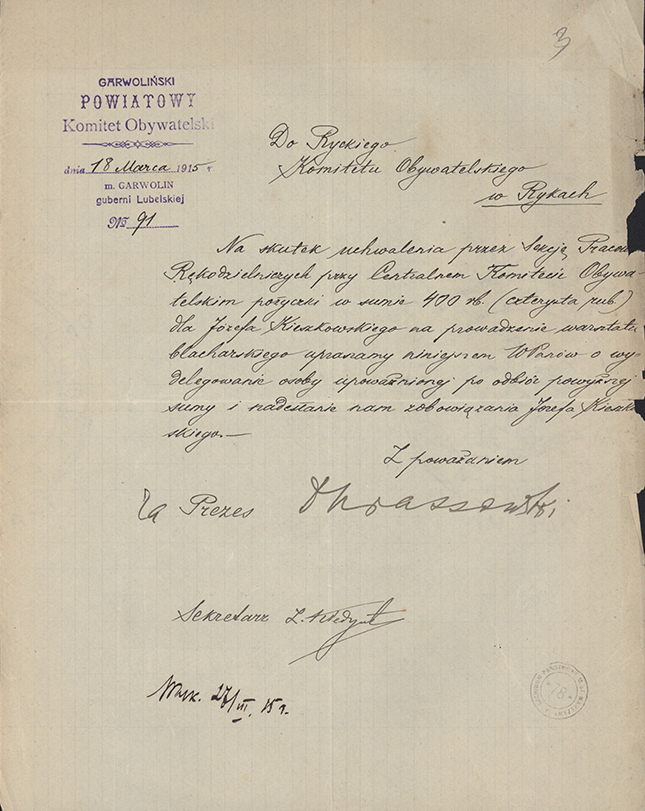 3
GARWOLIŃSKI
POWIATOWY
Komitet Obywatelski
dnia 18 Marca 1915 r
m. GARWOLIN
guberni Lubelskiej
№ 91
Do Ryckiego
Komitetu Obywatelskiego
w Rykach
Na skutek uchwalenia przez Sekcję Pracow
Rękodzielniczych przy Centralnem Komitecie Obywa-
telskim pożyczki w sumie 400 rb. (czterysta rub)
dla Józefa Kieszkowskiego na prowadzenie warsztatu
blacharskiego upraszamy niniejszem WPanów o wy-
delegowanie osoby upoważnionej po odbiór powyższej
sumy i nadesłanie nam zobowiązania Józefa Kieszkow
skiego.—
Z poważaniem
Za Prezes
Sekretarz
27/III 15 r.
78